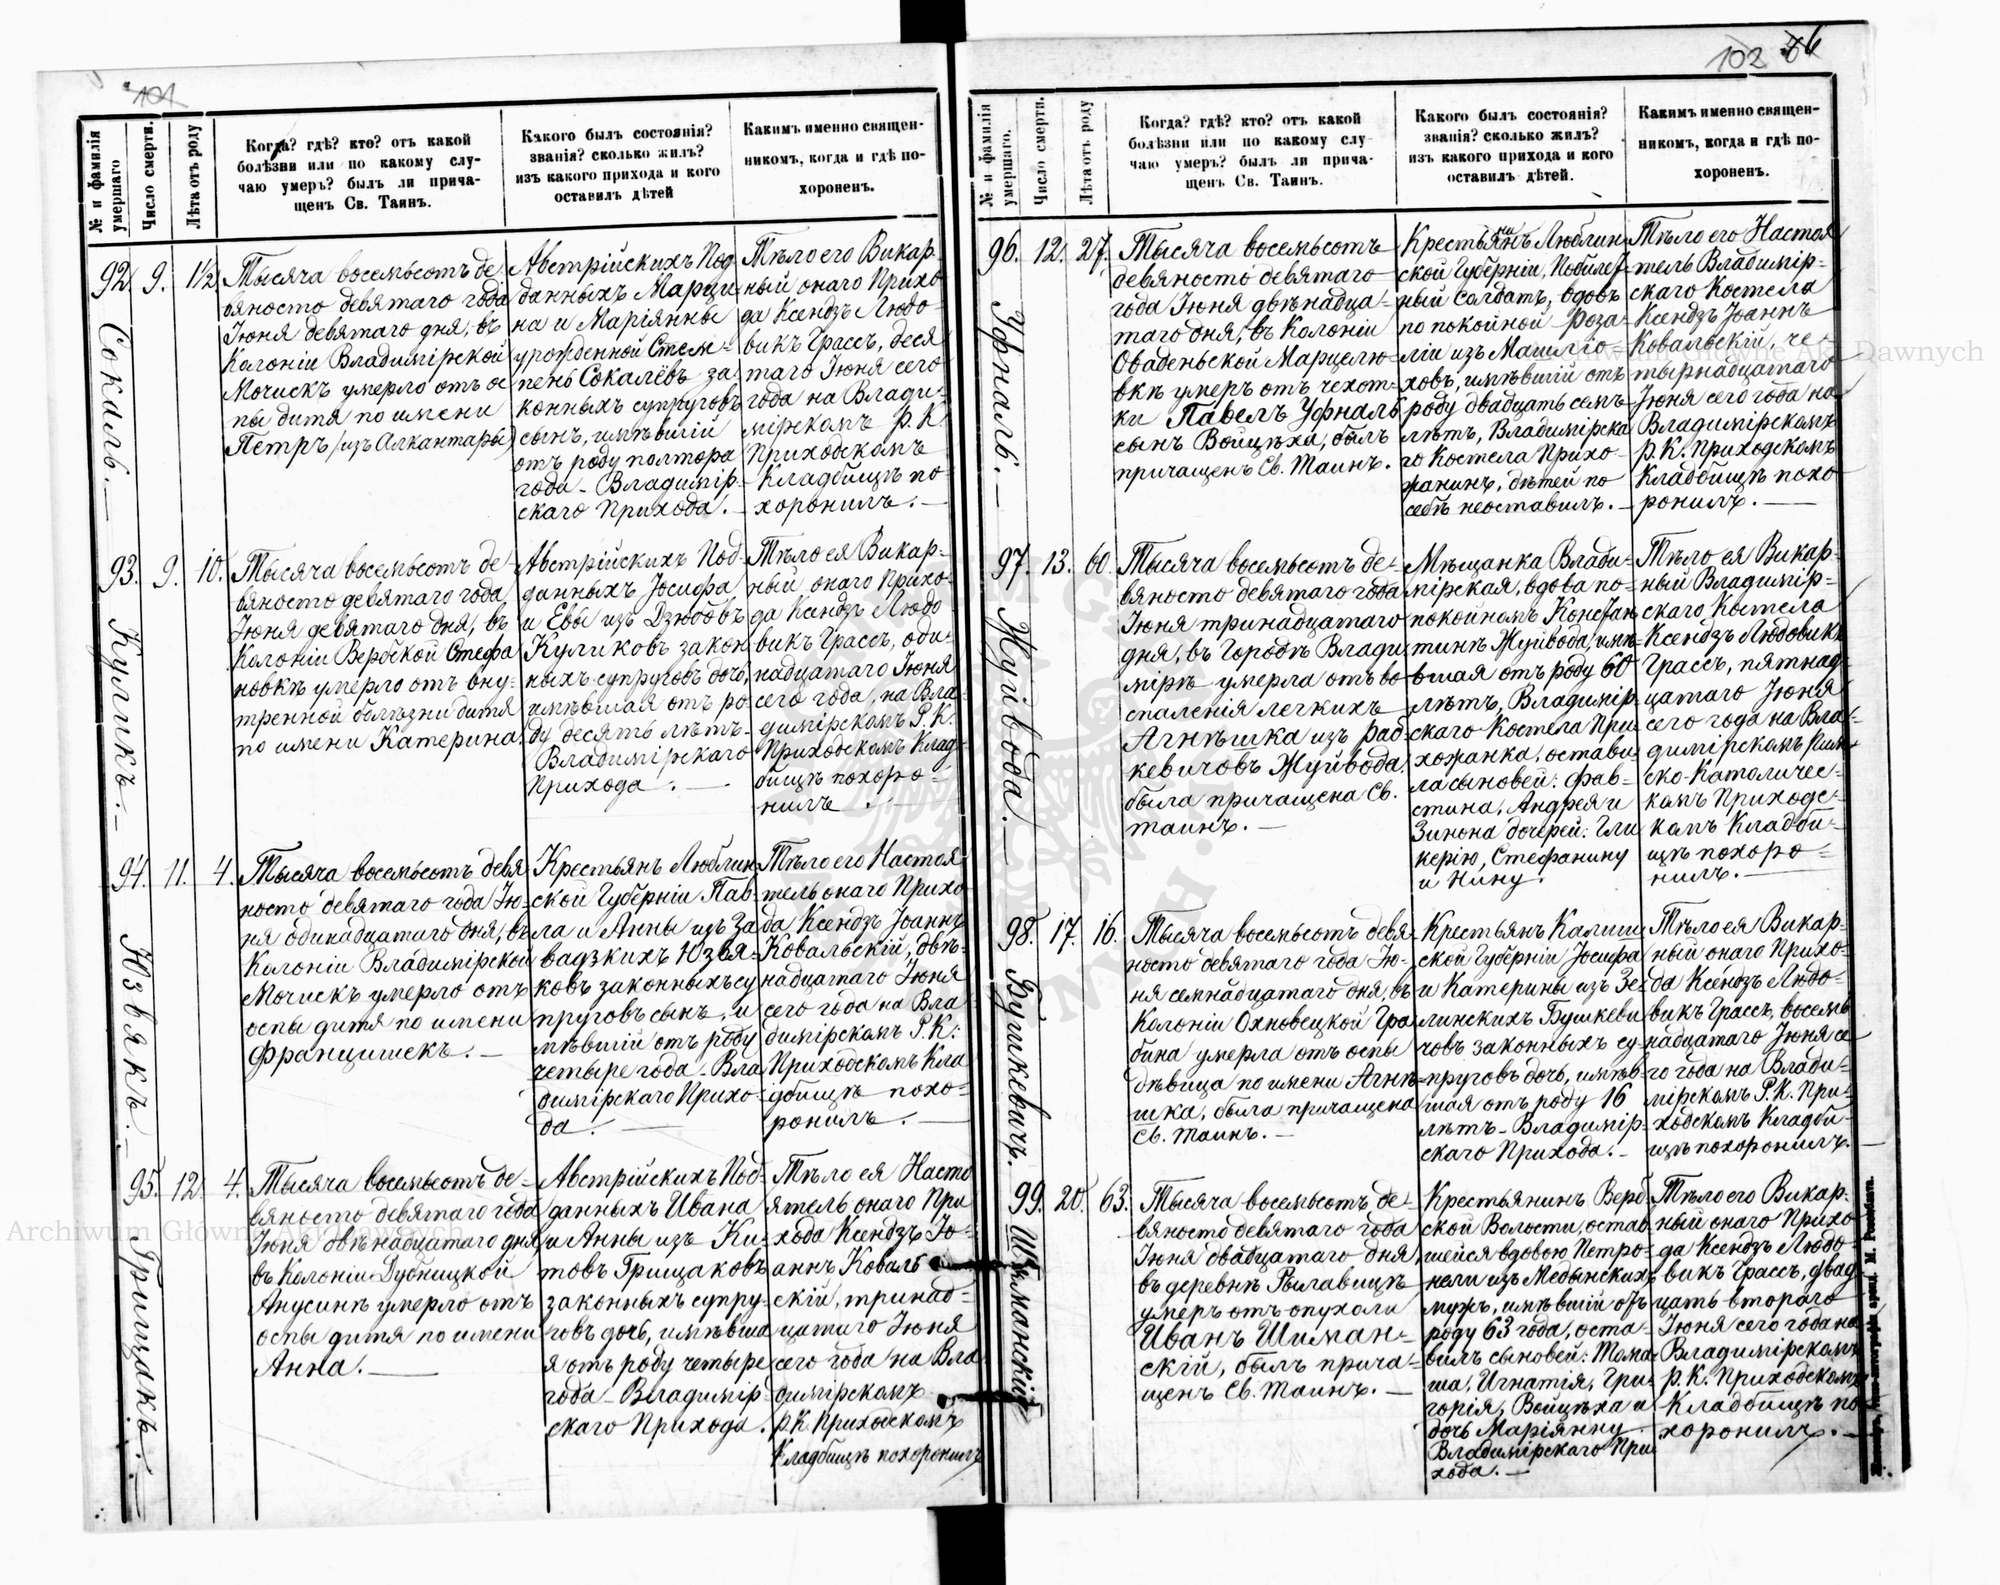 101
№ и фамилія умершаго
Число смерти.
Лѣта отъ роду
Когда? гдѣ? кто? отъ какой
болѣзни или по какому слу-
чаю умеръ? былъ ли прича-
щенъ Св. Таинъ.
Какого былъ состоянія?
званія? сколько жилъ?
изъ какого прихода и кого
оставилъ дѣтей
Какимъ именно священ-
никомъ, когда и гдѣ по-
хороненъ.
92. Сокаль.
9.
1½
Тысяча восемьсотъ де-
вяносто девятаго года
Іюня девятаго дня, въ
Колоніи Владимірской
Мочискъ умерло отъ ос
пы дитя по имени
Петръ (изъ Алкантары)
Австрійскихъ Под
данныхъ Марци-
на и Маріянны
урожденной Стем-
пень Сокалёвъ за-
конныхъ супруговъ
сынъ, имѣвшій
отъ роду полтора
года - Владимір-
скаго Прихода.
Тѣло его Викар-
ный онаго Прихо-
да Ксендзъ Людо-
викъ Грассъ, деся
таго Іюня сего
года на Влади-
мірскомъ Р. К.
Приходскомъ
Кладбищѣ по-
хоронилъ.
93. Куликъ.
9.
10.
Тысяча восемьсотъ де-
вяносто девятаго года
Іюня девятаго дня, въ
Колоніи Вербской Стефа
новкѣ умерло отъ вну-
тренной болѣзни дитя
по имени Катерина
Австрійскихъ Под-
данныхъ Іосифа
и Евы изъ Дзюбовъ
Куликовъ закон
ныхъ супруговъ дочь,
имѣвшая отъ ро-
ду десять лѣтъ-
Владимірскаго
Прихода.
Тѣло ея Викар-
ный онаго Прихо-
да Ксендзъ Людо
викъ Грассъ, оди-
надцатаго Іюня
сего года, на Вла-
димірскомъ Р. К.
Приходскомъ Клад-
бищѣ похоро-
нилъ.
94. Юзвякъ.
11.
4.
Тысяча восемьсотъ девя
носто девятаго года Ію-
ня одинадцатаго дня, въ
Колоніи Владимірской
Мочискъ умерло отъ
оспы дитя по имени
Францишекъ.
Крестьянъ Люблин
ской Губерніи Пав-
ла и Анны изъ За
вадзкихъ Юзвя-
ковъ законныхъ су
пруговъ сынъ, и
мѣвшій отъ роду
четыре года - Вла
димірскаго Прихо-
да.
Тѣло его Настоя
тель онаго Прихо
да Ксендзъ Іоаннъ
Ковальскій, двѣ-
надцатаго Іюня
сего года на Вла-
димірскомъ Р. К.
Приходскомъ Кла
дбищѣ похо-
ронилъ.
95. Грищакъ.
12.
4.
Тысяча восемьсотъ де-
вяносто девятаго года
Іюня двѣнадцатаго дня
въ Колоніи Дубницкой
Анусинѣ умерло отъ
оспы дитя по имени
Анна.
Австрійскихъ Под-
данныхъ Ивана
и Анны изъ Ки-
товъ Грищаковъ
законныхъ супру-
говъ дочь, имѣвша
я отъ роду четыре
года - Владимір-
скаго Прихода.
Тѣло ея Насто
ятель онаго При
хода Ксендзъ Іо-
аннъ Коваль-
скій, тринад-
цатаго Іюня
сего года на Вла
димірскомъ
Р. К. Приходскомъ
Кладбищѣ похоронилъ
102 86
№ и фамилія умершаго.
Число смерти.
Лѣта отъ роду
Когда? гдѣ? кто? отъ какой
болѣзни или по какому слу-
чаю умеръ? былъ ли прича-
щенъ Св. Таинъ.
Какого былъ состоянія?
званія? сколько жилъ?
изъ какого прихода и кого
оставилъ дѣтей.
Какимъ именно священ-
никомъ, когда и гдѣ по-
хороненъ.
96. Уфналь.
12.
27.
Тысяча восемьсотъ
девяносто девятаго
года Іюня двѣнадца-
таго дня, въ Колоніи
Оваденьской Марцелю-
вкѣ умеръ отъ чехот-
ки Павелъ Уфналь
сынъ Войцѣха, былъ
причащенъ Св. Таинъ.
Крестьянинъ Люблин-
ской Губерніи, Побилет-
ный солдатъ, вдовъ
по покойной Роза-
ліи изъ Машліо-
ховъ, имѣвшій отъ
роду двадцать семь
лѣтъ, Владимірска
го Костела Прихо-
жанинъ, дѣтей по
себѣ неоставилъ.
Тѣло его Настоя
тель Владимір-
скаго Костела
Ксендзъ Іоаннъ
Ковальскій, че-
тырнадцатаго
Іюня сего года на
Владимірскомъ
Р. К. Приходскомъ
Кладбищѣ похо
ронилъ.
97. Жуйвода.
13.
60.
Тысяча восемьсотъ де-
вяносто девятаго года
Іюня тринадцатаго
дня, въ Городѣ Влади
мірѣ умерла отъ во-
спаленія легкихъ
Агнѣшка изъ Рад-
кевичовъ Жуйвода,
была причащена Св.
таинъ.
Мѣщанка Влади-
мірская, вдова по-
покойномъ Констан
тинѣ Жуйвода, имѣ-
вшая отъ роду 60
лѣтъ, Владимір-
скаго Костела При-
хожанка, остави-
ла сыновей: Фав-
стина, Андрея и
Зинона дочерей: Гли
керію, Стефанину
и Нину.
Тѣло ея Викар-
ный Владимір-
скаго Костела
Ксендзъ Людовикъ
Грассъ, пятнад-
цатаго Іюня
сего года на Вла-
димірскомъ Рим-
ско-Католичес-
комъ Приходс-
комъ Кладби-
щѣ похоро-
нилъ.
98. Бушкевичъ.
17.
16.
Тысяча восемьсотъ девя-
носто девятаго года Ію-
ня семнадцатаго дня, въ
Колоніи Охновецкой Гра
бина умерла отъ оспы
дѣвица по имени Агнѣ-
шка, была причащена
Св. Таинъ.
Крестьянъ Калиш-
ской Губерніи Іосифа
и Катерины изъ Зе-
линскихъ Бушкеви
човъ законныхъ су-
пруговъ дочь, имѣв-
шая отъ роду 16
лѣтъ - Владимір-
скаго Прихода.
Тѣло ея Викар-
ный онаго Прихо-
да Ксендзъ Людо-
викъ Грассъ, восемь
надцатаго Іюня се
го года на Влади-
мірскомъ Р. К. При-
ходскомъ Кладби-
щѣ похоронилъ.
99. Шиманскій
20.
63.
Тысяча восемьсотъ де-
вяносто девятаго года
Іюня двадцатаго дня,
въ деревнѣ Рылавицѣ
умеръ отъ опухоли
Иванъ Шиман-
скій, былъ прича-
щенъ Св. Таинъ.
Крестьянинъ Верб-
ской Волости, остав
шейся вдовою Петро-
нели изъ Медынскихъ
мужъ, имѣвшій отъ
роду 63 года, оста-
вилъ сыновей: Тома-
ша, Игнатія, Гри-
горія, Войцѣха и
дочь Маріянну
Владимірскаго При
хода.
Тѣло его Викар-
ный онаго Прихо
да Ксендзъ Людо-
викъ Грассъ, двад-
цать второго
Іюня сего года на
Владимірскомъ
Р. К. Приходскомъ
Кладбищѣ по
хоронилъ.
Archiwum Główne Akt Dawnych
Archiwum Główne Akt Dawnych